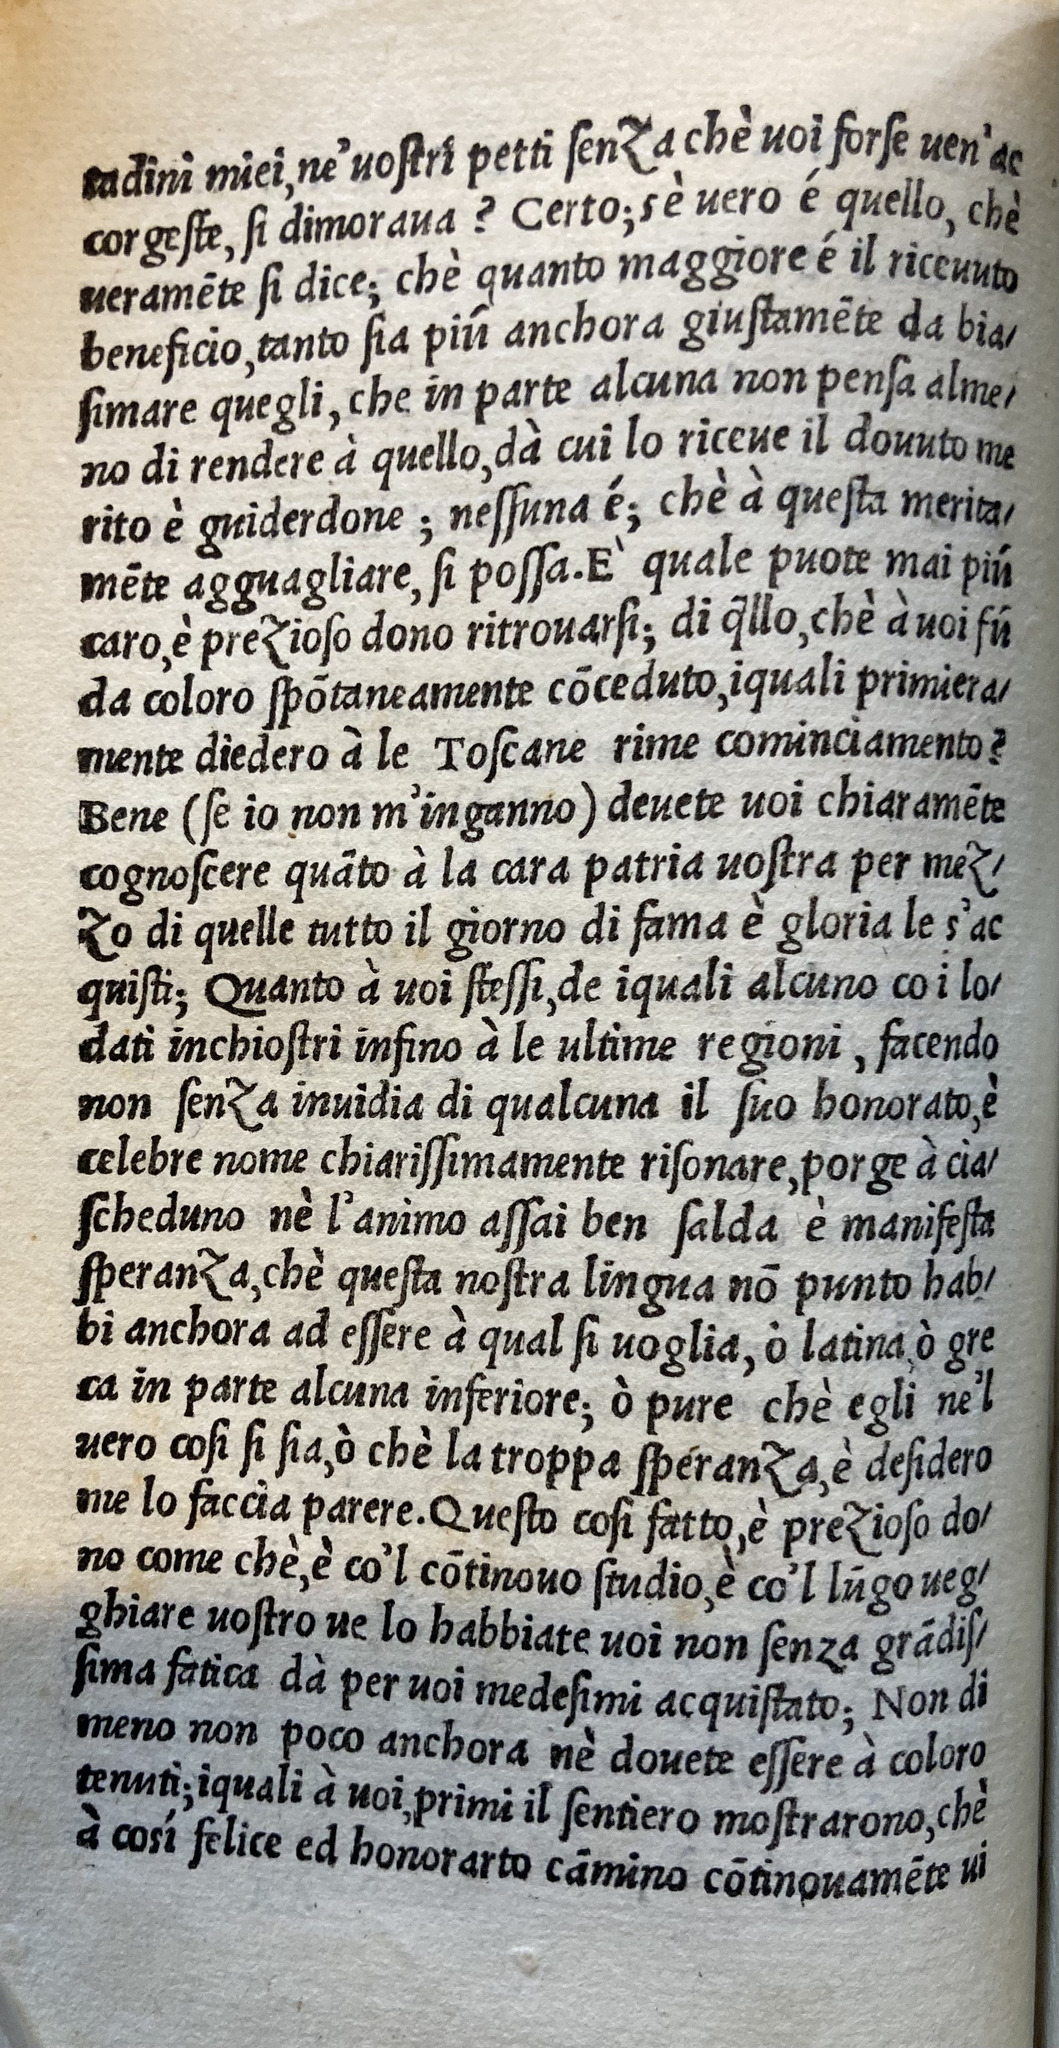 tadini miei, ne' uoſtri petti ſenza chè uoi forſe uen'ac
corgeſte, ſi dimoraua? Certo; s è uero é quello, chè
ueramēte ſi dice; chè quanto maggiore é il riceuuto
beneficio, tanto ſia piú anchora giuſtamēte da bia/
ſimare quegli, che in parte alcuna non penſa alme/
no di rendere à quello, dà cui lo riceue il douuto me
rito è guiderdone; neſſuna é; chè à queſta merita/
mēte agguagliare, ſi poſſa. E` quale puote mai piú
caro, è prezioſo dono ritrouarſi; di q̄llo, chè à uoi fú
da coloro ſpōtaneamente cōceduto, iquali primiera/
mente diedero à le Toſcane rime cominciamento?
Bene (ſe io non m'inganno) deuete uoi chiaramēte
cognoſcere quāto à la cara patria uoſtra per mez/
zo di quelle tutto il giorno di fama è gloria le s'ac
quiſti; Quanto à uoi ſteſſi, de iquali alcuno co i lo/
dati inchioſtri infino à le ultime regioni, facendo
non ſenza inuidia di qualcuna il ſuo honorato, è
celebre nome chiariſſimamente riſonare, porge à cia/
ſcheduno nè l'animo aſſai ben ſalda è manifeſta
ſperanza, chè queſta noſtra lingua nō punto hab/
bi anchora ad eſſere à qual ſi uoglia, ò latina, ò gre
ca in parte alcuna inferiore; ò pure chè egli ne'l
uero coſi ſi ſia, ò chè la troppa ſperanza, è deſidero
me lo faccia parere. Queſto coſi fatto, è prezioſo do/
no come chè, è co'l cōtinouo ſtudio, è co'l lūgo ueg/
ghiare uoſtro ue lo habbiate uoi non ſenza grādiſ/
ſima fatica dà per uoi medeſimi acquiſtato; Non di
meno non poco anchora nè douete eſſere à coloro
tenuti; iquali à uoi, primi il ſentiero moſtrarono, chè
à cosí felice ed honorarto cāmino cōtinouamēte ui